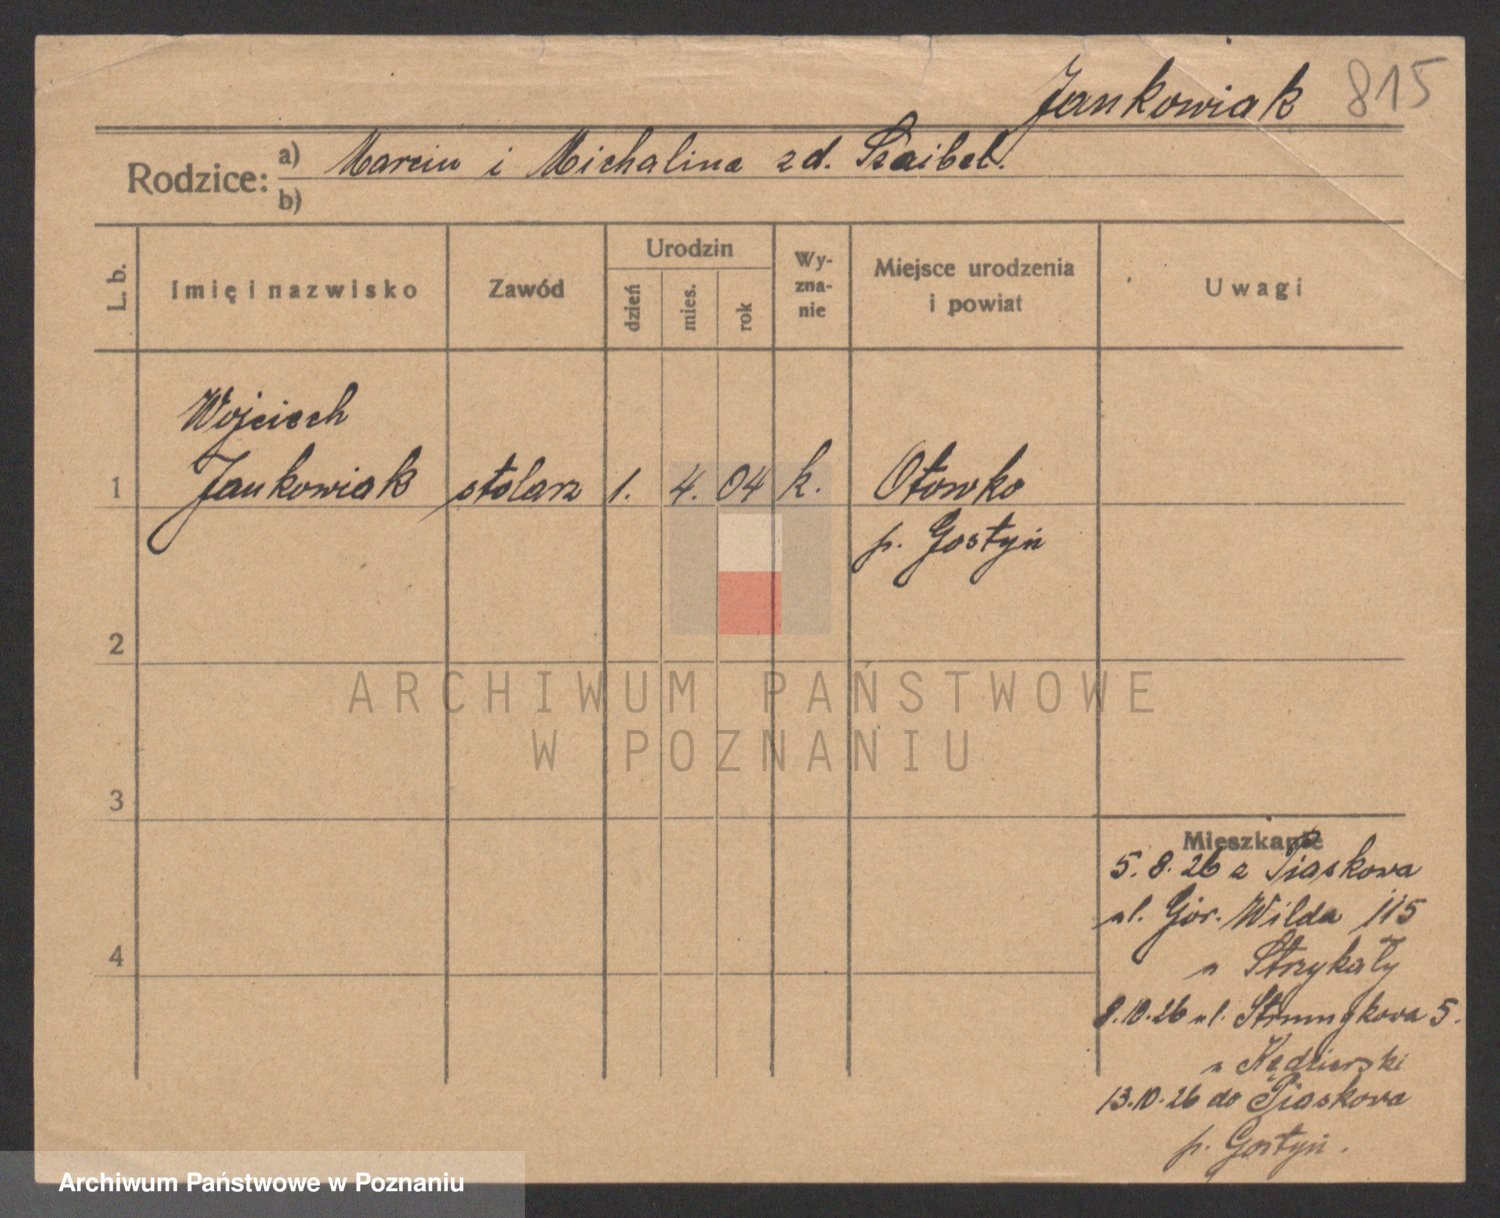 Jankowiak 815
Rodzice: a) Marcin i Michalina zd. Szaibel.
b)
L. b. Imię i nazwisko Zawód Urodzin dzień mies. rok Wy-zna-nie Miejsce urodzenia i powiat Uwagi
Wojciech
1 Jankowiak stolarz 1. 4. 04 k. Otowko
p. Gostyń
2
ARCHIWUM PAŃSTWOWE
W POZNANIU
3
Mieszkanie
5. 8. 26 z Piaskowa
ul. Gór. Wilda 115
u Strzykały
4
8.10.26 ul. Strumykowa 5.
u Kędzierski
13.10.26 do Piaskowa
p. Gostyń.
Archiwum Państwowe w Poznaniu